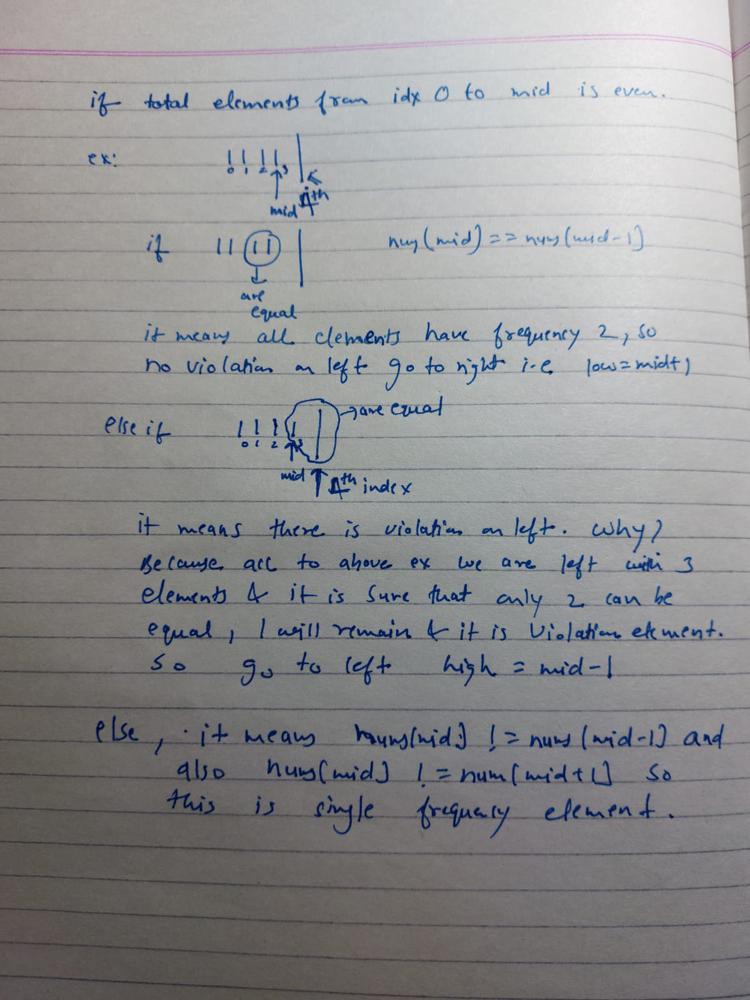 if total elements from idx 0 to mid is even.
ex:
0 1 2 3
mid 4th
if nums[mid] == nums[mid-1]
are
equal
it means all elements have frequency 2, so
no violation on left go to right i.e low=mid+1
else if → are equal
0 1 2 3
mid 4th index
it means there is violation on left. Why?
Because acc to above ex we are left with 3
elements & it is sure that only 2 can be
equal, 1 will remain & it is violation element.
So go to left high = mid-1
else, it means nums[mid] != nums[mid-1] and
also nums[mid] != num[mid+1] so
this is single frequency element.